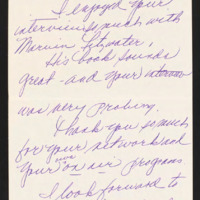 I enjoyed your
interviews much with
Marvin Fitzwater,
His book sounds
great - and your interview
was very probing.
Thank you so much
for your network and
your own "on air" program.
I look forward to